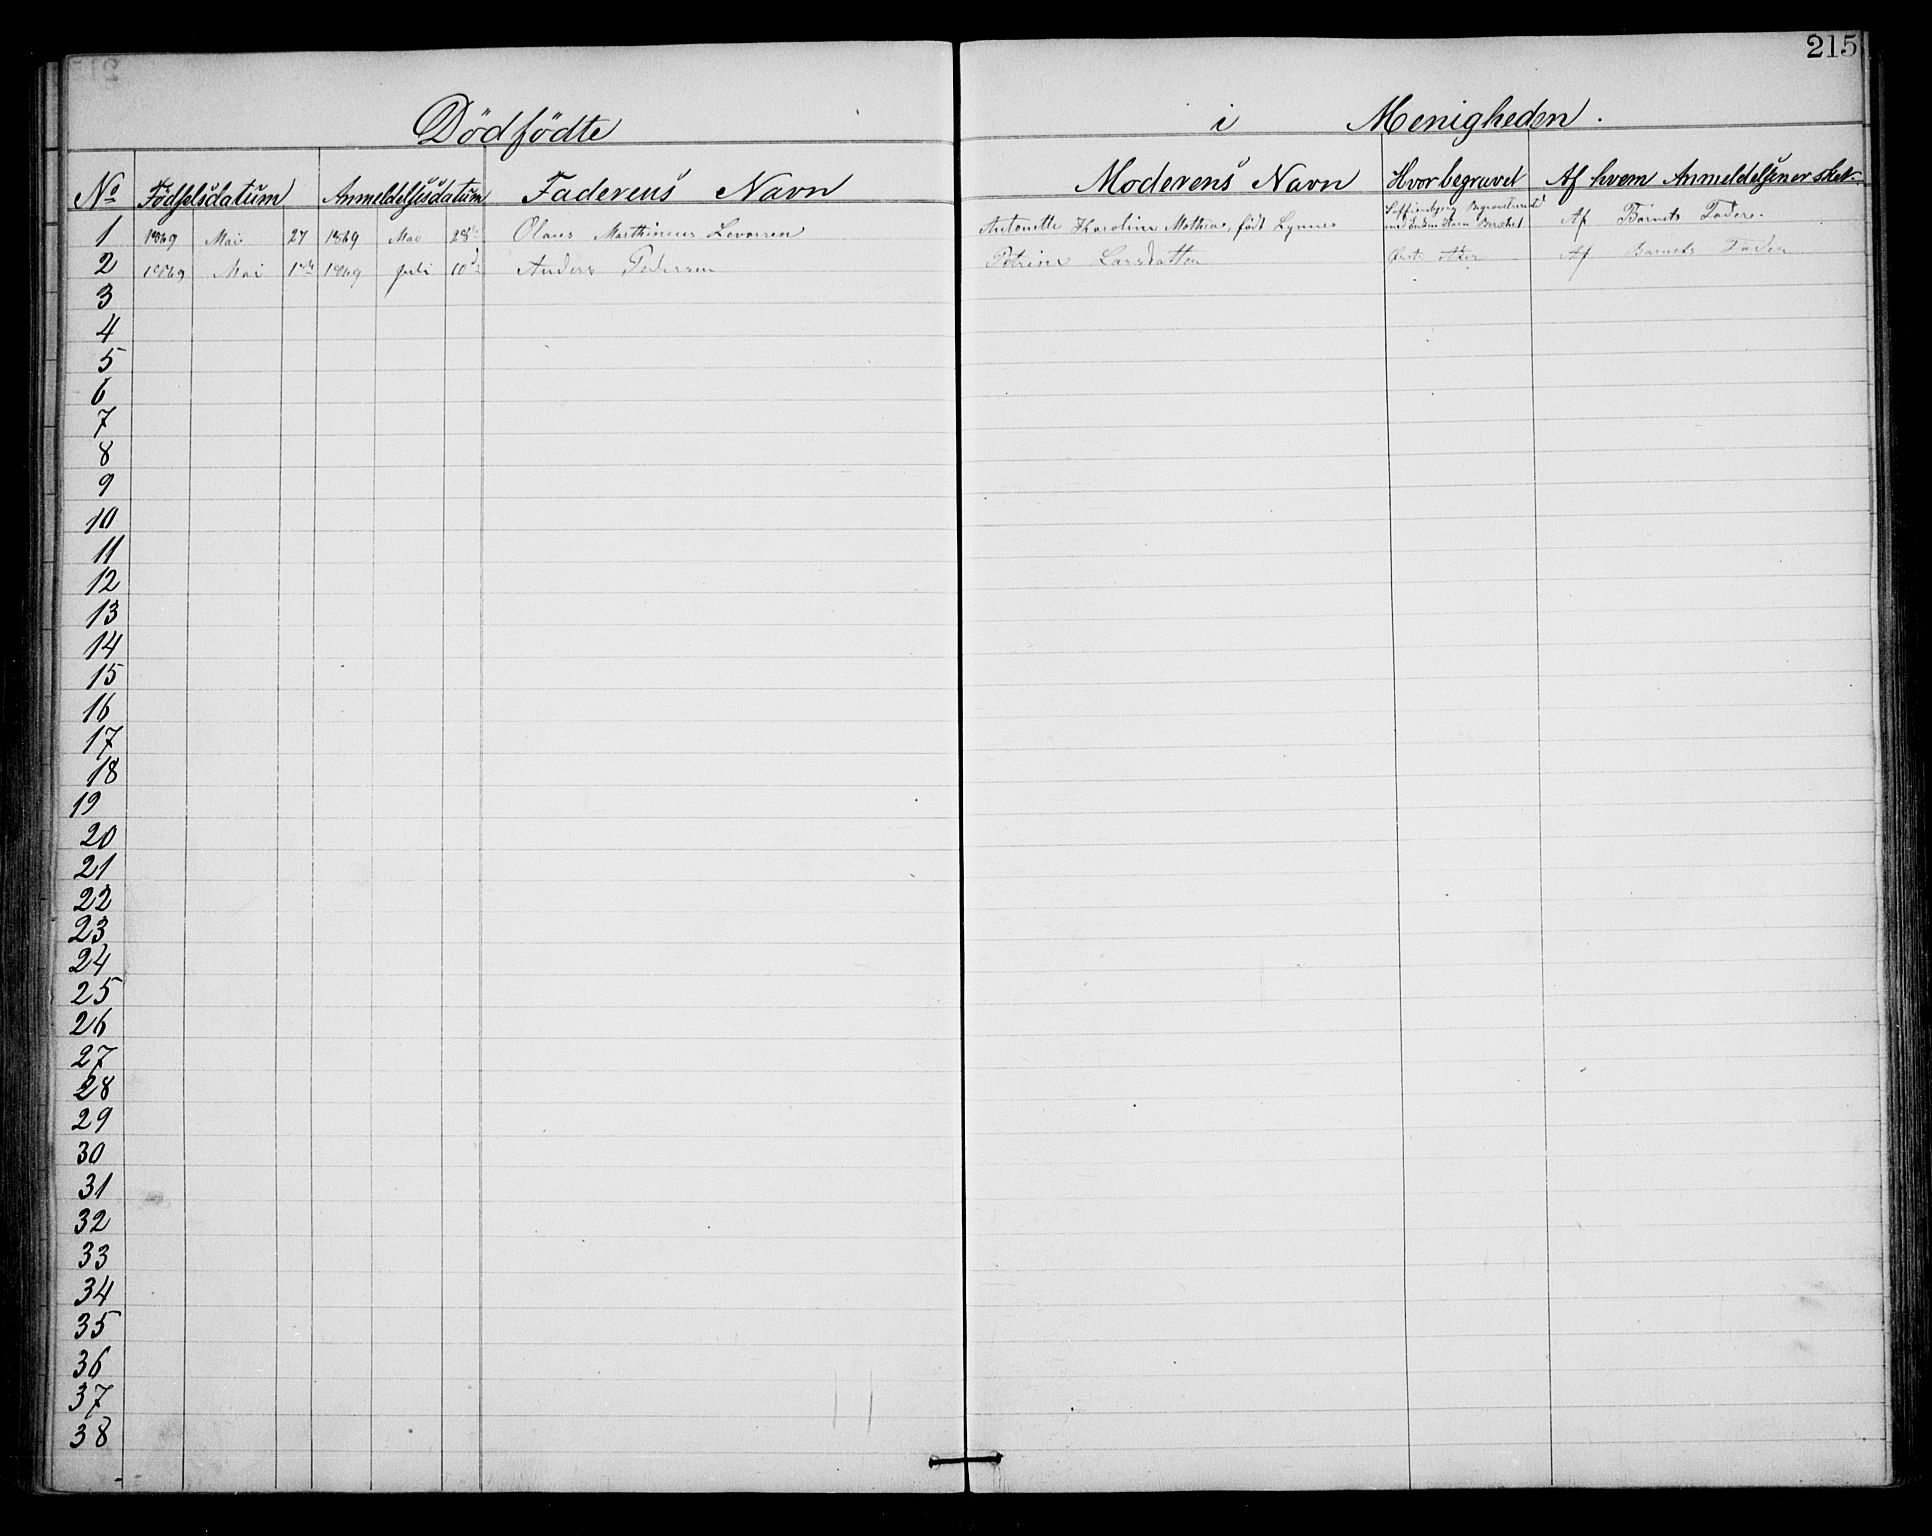 215
Dødfødte i Menigheden.
No Fødselsdatum Anmeldelsesdatum Faderens Navn Moderens Navn Hvor begravet Af hvem Anmeldelsen er sket.
1 1869 Mai 27 1869 Mai 28 Olaus Marthinius Levorsen Antonette Karoline Mathea, født Lynnes Af Barnets Fader.
2 1869 Mai 1869 Juli 10 Anders Pedersen Petrine Larsdatter Aker Af Barnets Fader
3
4
5
6
7
8
9
10
11
12
13
14
15
16
17
18
19
20
21
22
23
24
25
26
27
28
29
30
31
32
33
34
35
36
37
38